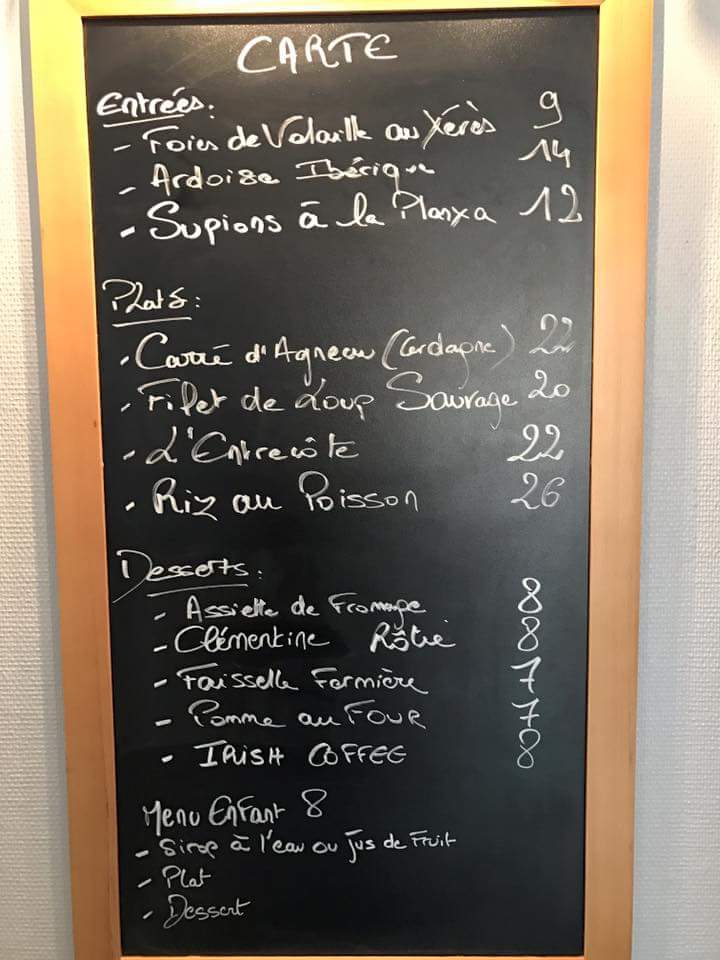 CARTE
Entrées:
- Foies de Volaille au Xérès 9
- Ardoise Ibérique 14
- Supions à la Planxa 12
Plats:
- Carré d'Agneau (Cerdagne) 22
- Filet de Loup Sauvage 20
- L'Entrecôte 22
- Riz au Poisson 26
Desserts:
- Assiette de Fromage 8
- Clémentine Rôtie 8
- Faisselle Fermière 7
- Pomme au FOUR 7
- IRISH COFFEE 8
Menu EnFant 8
- Sirop à l'eau ou Jus de Fruit
- Plat
- Dessert